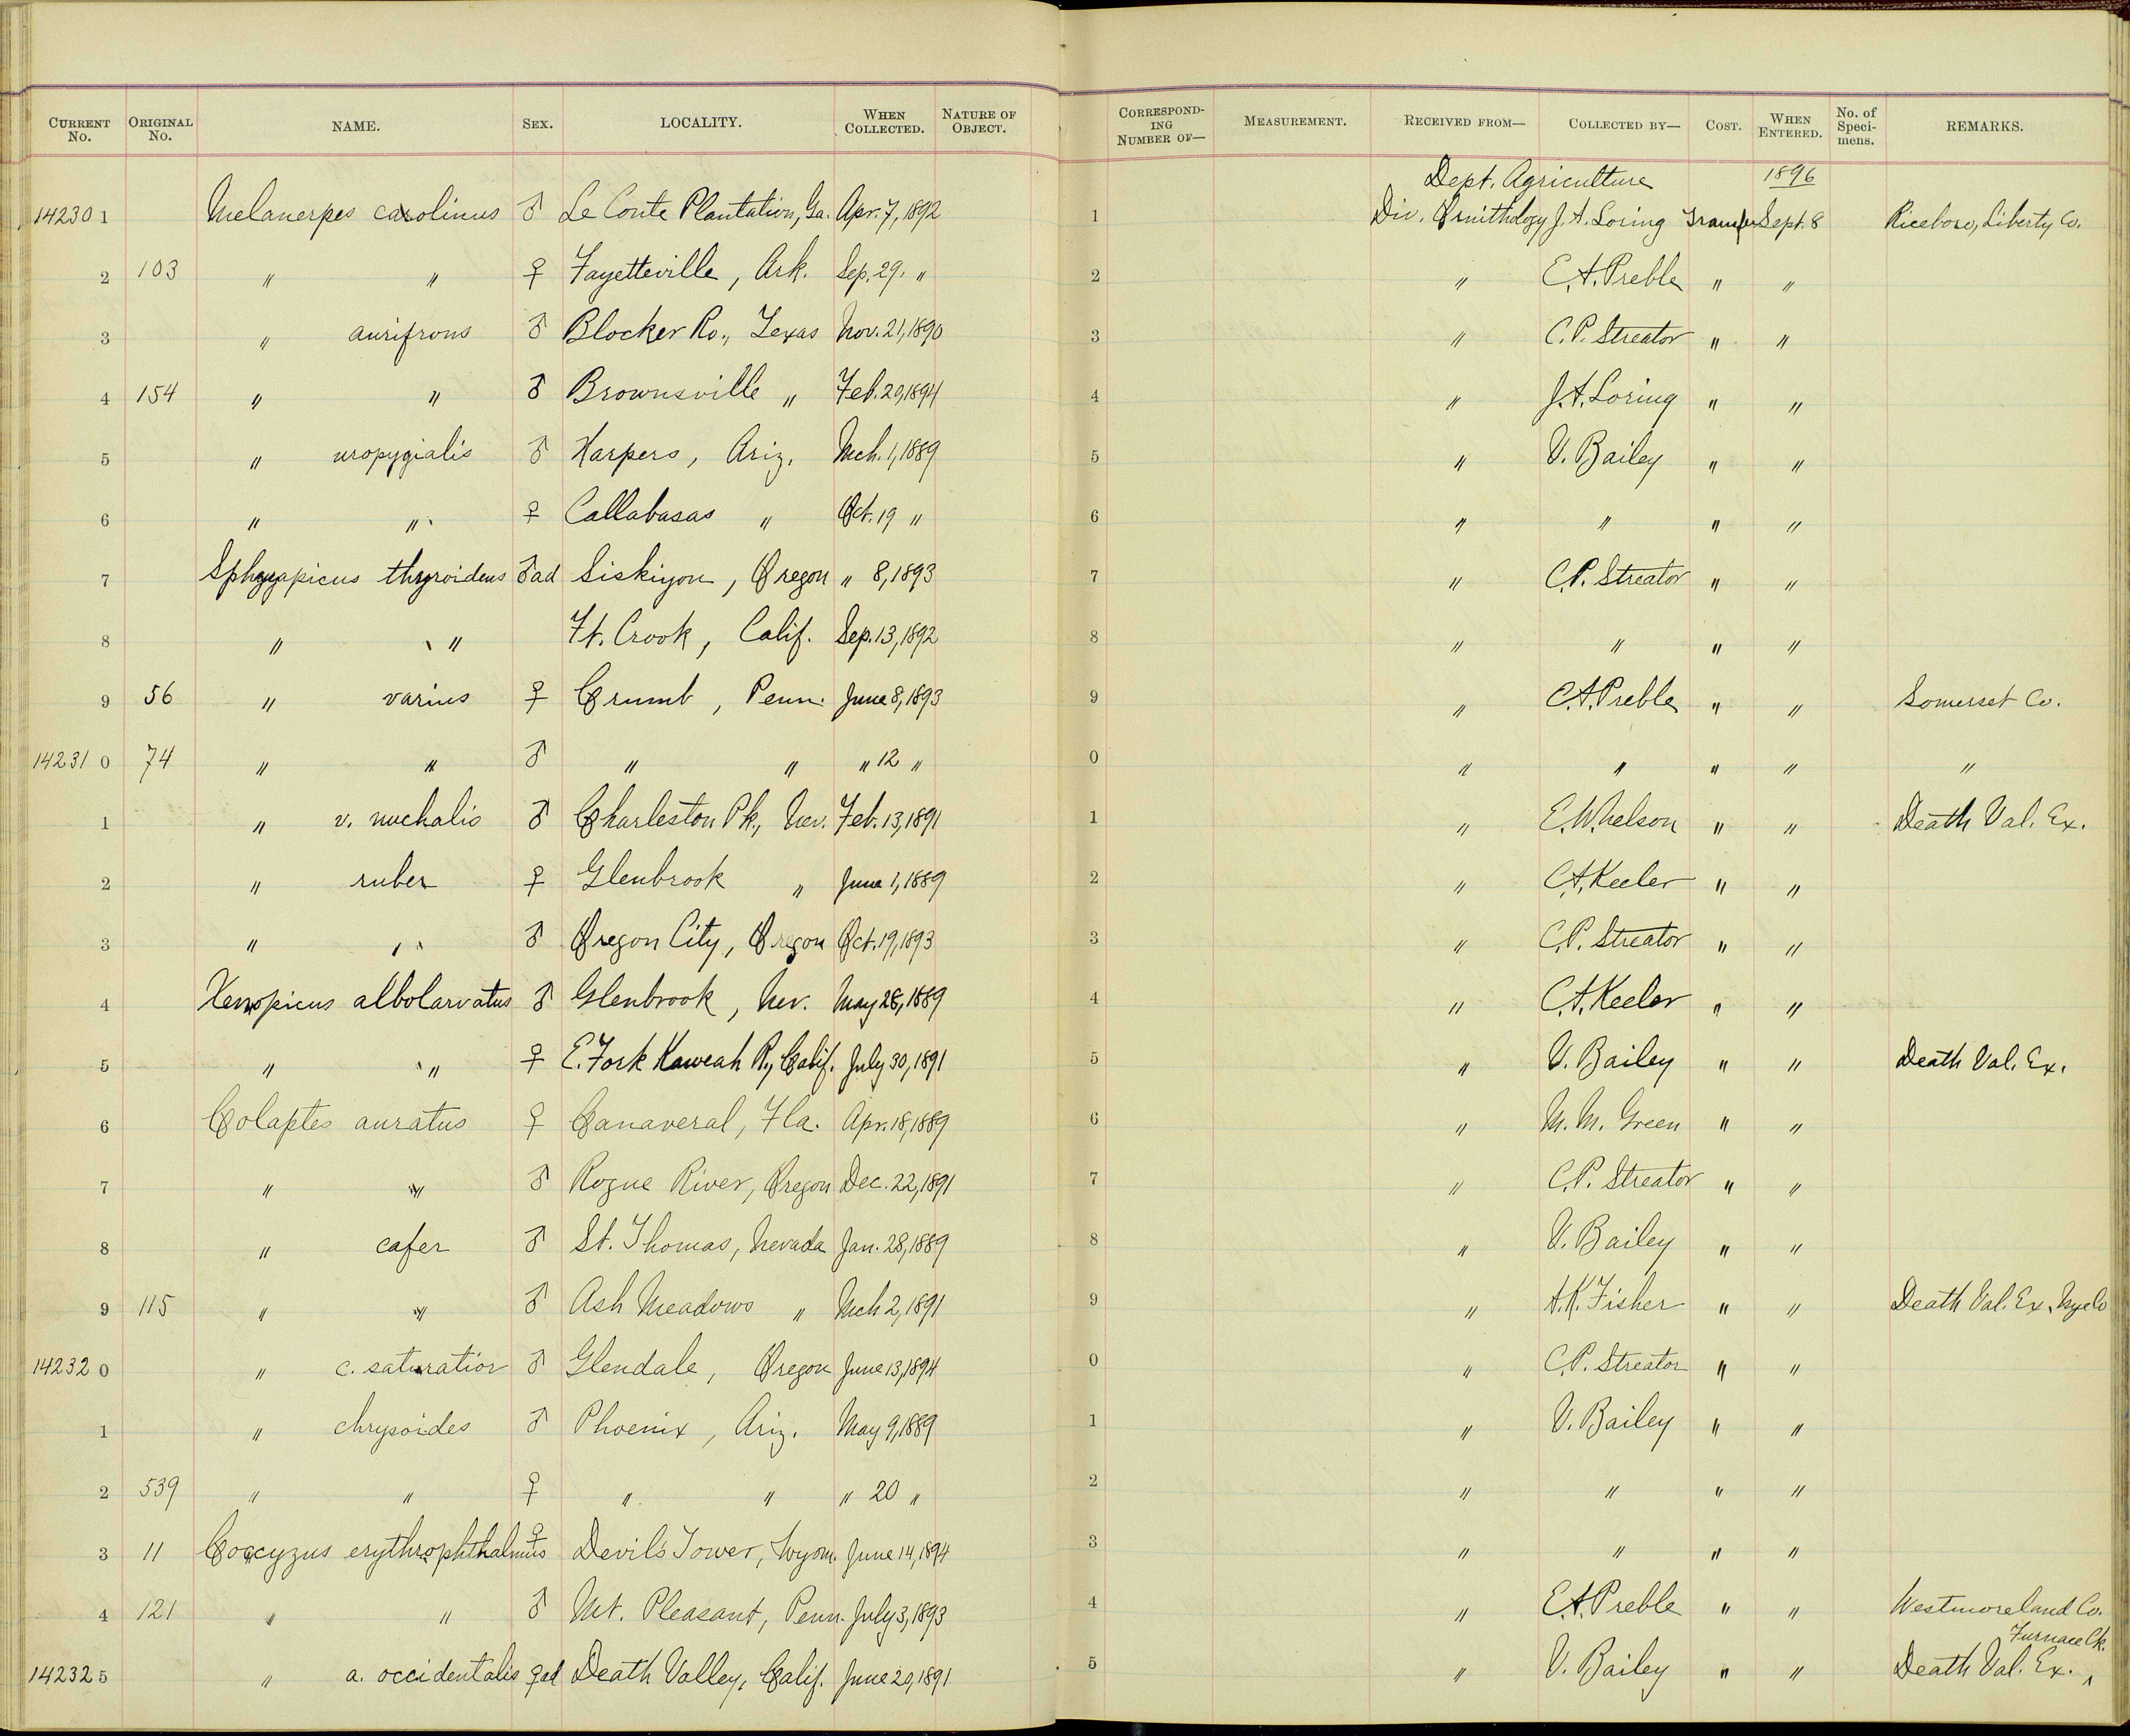 CURRENT No. ORIGINAL No. NAME. SEX. LOCALITY. WHEN COLLECTED. NATURE OF OBJECT. CORRESPOND-ING NUMBER OF— MEASUREMENT. RECEIVED FROM— COLLECTED BY— COST. WHEN ENTERED. No. of Speci-mens. REMARKS.
Dept. Agriculture 1896
142301 Melanerpes carolinus ♂ Le Conte Plantation, Ga. Apr. 7, 1892 1 Div. Ornithology J. A. Loring Transfer Sept. 8 Riceboro, Liberty Co.
2 103 " " ♀ Fayetteville, Ark. Sep. 29. " 2 " E. A. Preble " "
3 " aurifrons ♂ Blocker Ro., Texas Nov. 21, 1890 3 " C. P. Streator " "
4 154 " " ♂ Brownsville " Feb. 20, 1894 4 " J. A. Loring " "
5 " uropygialis ♂ Harpers, Ariz. Mch. 1, 1889 5 " V. Bailey " "
6 " " ♀ Callabasas " Oct. 19 " 6 " " " "
7 Sphyrapicus thyroideus ♂ ad Siskiyou, Oregon " 8, 1893 7 " C. P. Streator " "
8 " " Ft. Crook, Calif. Sep. 13, 1892 8 " " " "
9 56 " varius ♀ Crumb, Penn. June 8, 1893 9 " E. A. Preble " " Somerset Co.
142310 74 " " ♂ " " " 12 " 0 " " " " "
1 " v. nuchalis ♂ Charleston Pk., Nev. Feb. 13, 1891 1 " E. W. Nelson " " Death Val. Ex.
2 " ruber ♀ Glenbrook " June 1, 1889 2 " C. A. Keeler " "
3 " " ♂ Oregon City, Oregon Oct. 19, 1893 3 " C. P. Streator " "
4 Xenopicus albolarvatus ♂ Glenbrook, Nev. May 28, 1889 4 " C. A. Keeler " "
5 " " ♀ E. Fork Kaweah R., Calif. July 30, 1891 5 " V. Bailey " " Death Val. Ex.
6 Colaptes auratus ♀ Canaveral, Fla. Apr. 18, 1889 6 " M. M. Green " "
7 " " ♂ Rogue River, Oregon Dec. 22, 1891 7 " C. P. Streator " "
8 " cafer ♂ St. Thomas, Nevada Jan. 28, 1889 8 " V. Bailey " "
9 115 " " ♂ Ash Meadows " Mch 2, 1891 9 " A. K. Fisher " " Death Val. Ex. Nye Co
142320 " c. saturatior ♂ Glendale, Oregon June 13, 1894 0 " C. P. Streator " "
1 " chrysoides ♂ Phoenix, Ariz. May 9, 1889 1 " V. Bailey " "
2 539 " " ♀ " " " 20 " 2 " " " "
3 11 Coccyzus erythrophthalmus ♀ Devil's Tower, Wyom. June 14, 1894 3 " " " "
4 121 " " ♂ Mt. Pleasant, Penn. July 3, 1893 4 " E. A. Preble " " Westmoreland Co.
Furnace Ck.
142325 " a. occidentalis ♀ ad Death Valley, Calif. June 20, 1891 5 " V. Bailey " " Death Val. Ex. ^